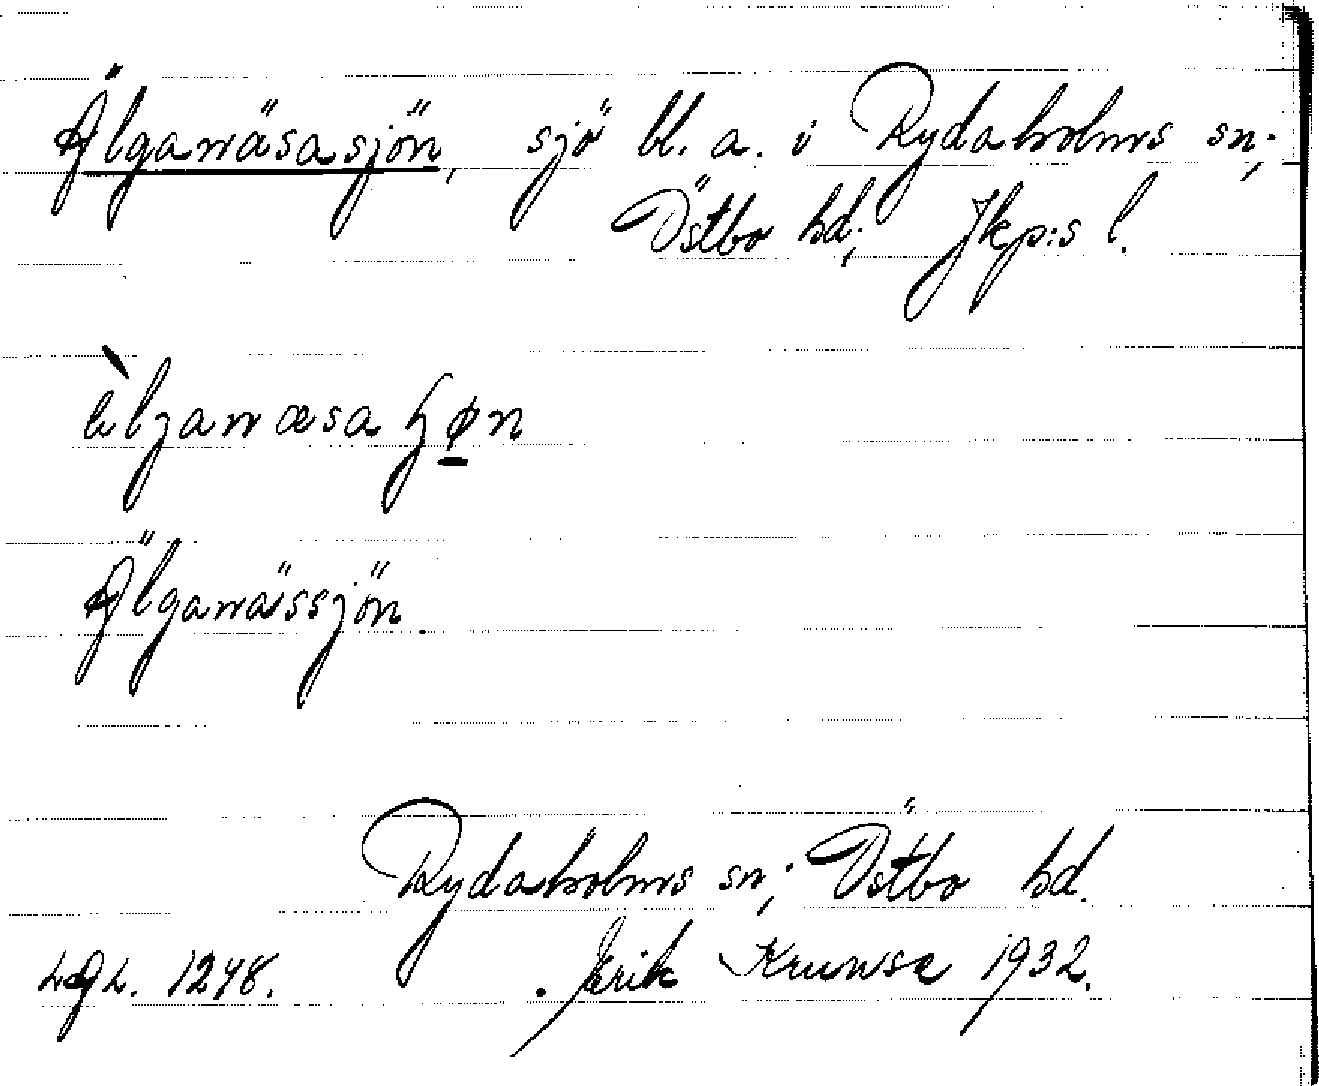 Älganäsasjön, sjö bl. a. i Rydaholms sn;
Östbo hd; Jkp:s l.
Älganässjön
Rydaholms sn; Östbo hd.
1248. Erik 1932.